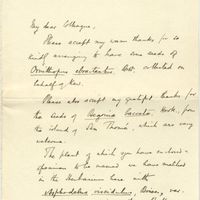 My dear Colleague,
Please accept my warm thanks for so
kindly arranging to have some seeds of
Ornithopus ebracteatus, Brot. collected on
behalf of Kew.
Please also accept my grateful thanks for
the seeds of Begonia baccata, Hook. from
the island of San Thomé, which are very
welcome.
The plant of which you have enclosed
specimen to be named we have matched
in the Herbarium here with
Asphodelus viscidulus, Boiss., var.